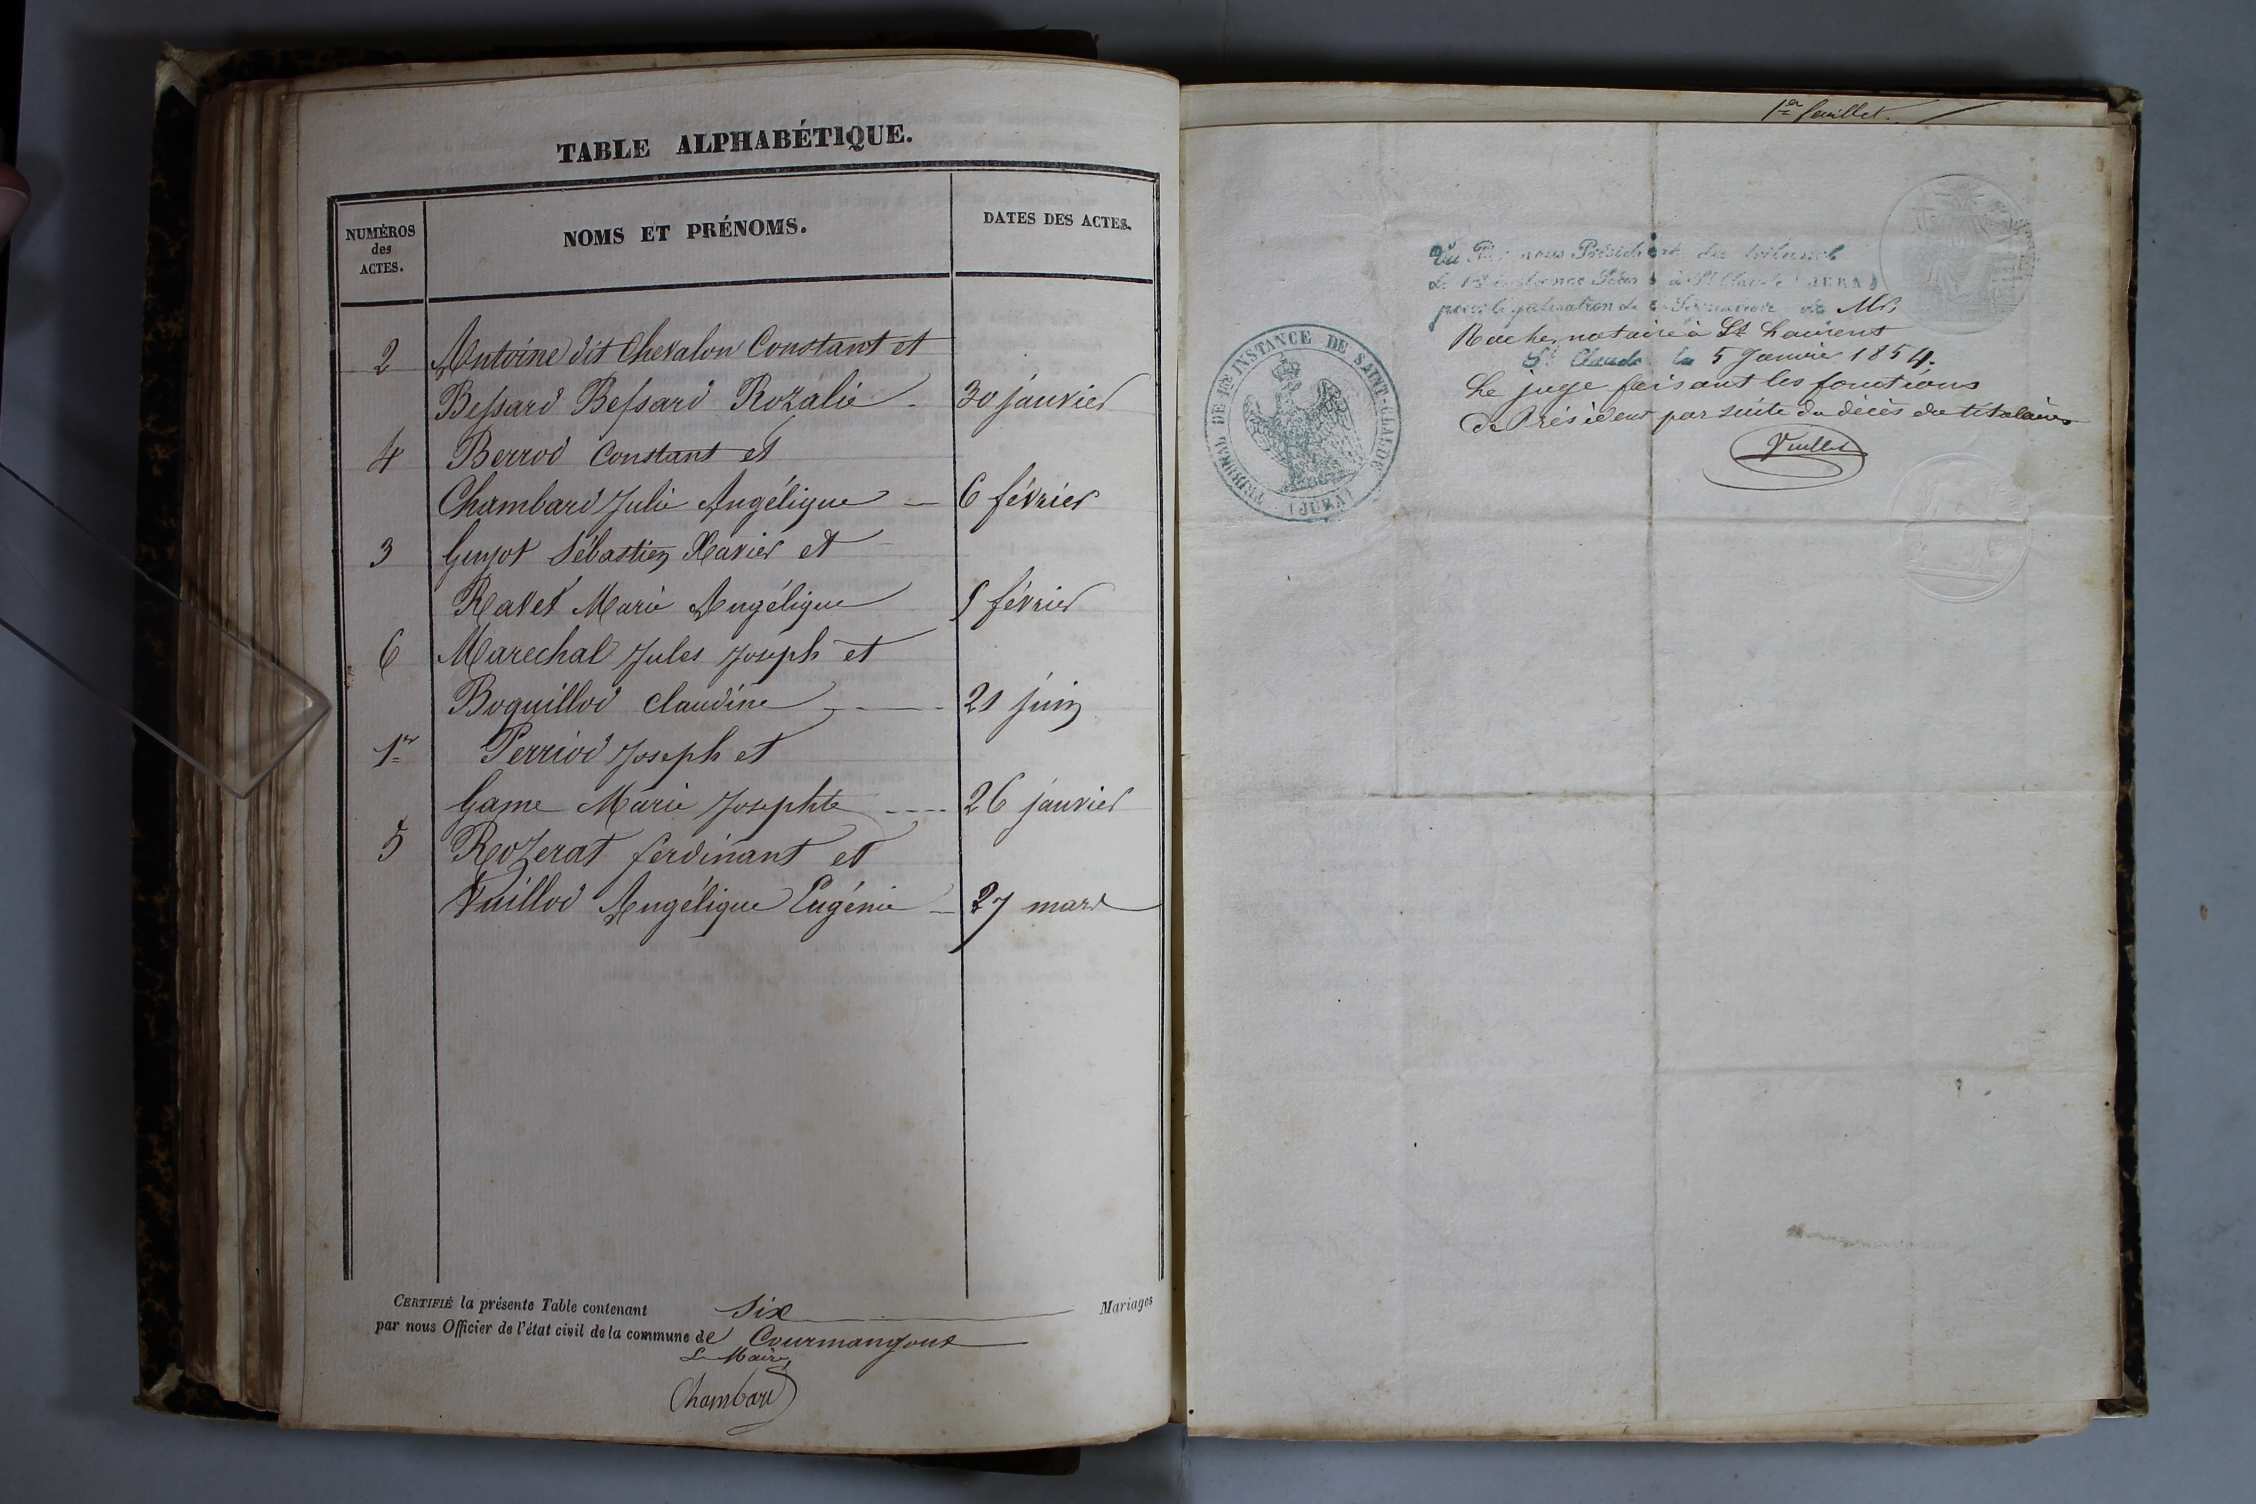 TABLE ALPHABÉTIQUE.
NUMÉROS
des
ACTES.
NOMS ET PRÉNOMS.
DATES DES ACTES.
2 Antoine dit Chevalon Constant et
Bessard Bessard Rozalie - 30 janvier
4 Berrod Constant et
Chambard Julie Angélique — 6 février
3 Guyot Sébastien Xavier et
Ravet Marie Angélique 5 février
6 Marechal Jules Joseph et
Boguillod Claudine 21 juin
1er Perriod Joseph et
Game Marie Josephte ---- 26 janvier
5 Rozerat ferdinant et
Vuillod Angélique Eugénie — 27 mars
CERTIFIÉ la présente Table contenant Six Mariages
par nous Officier de l'état civil de la commune de Courmangoux
Le Maire,
Chambard
1er feuillet.
Vu Par nous Président du tribunal
de 1re instance séant à St Claude (JURA)
pour légalisation de la Signature de Mr.
Roche, notaire à St Laurent
St Claude le 5 Janvier 1854.
Le juge faisant les fonctions
de Président par suite du décès du titulaire
Vuillet
TRIBUNAL DE 1ère INSTANCE DE SAINT-CLAUDE
(JURA)